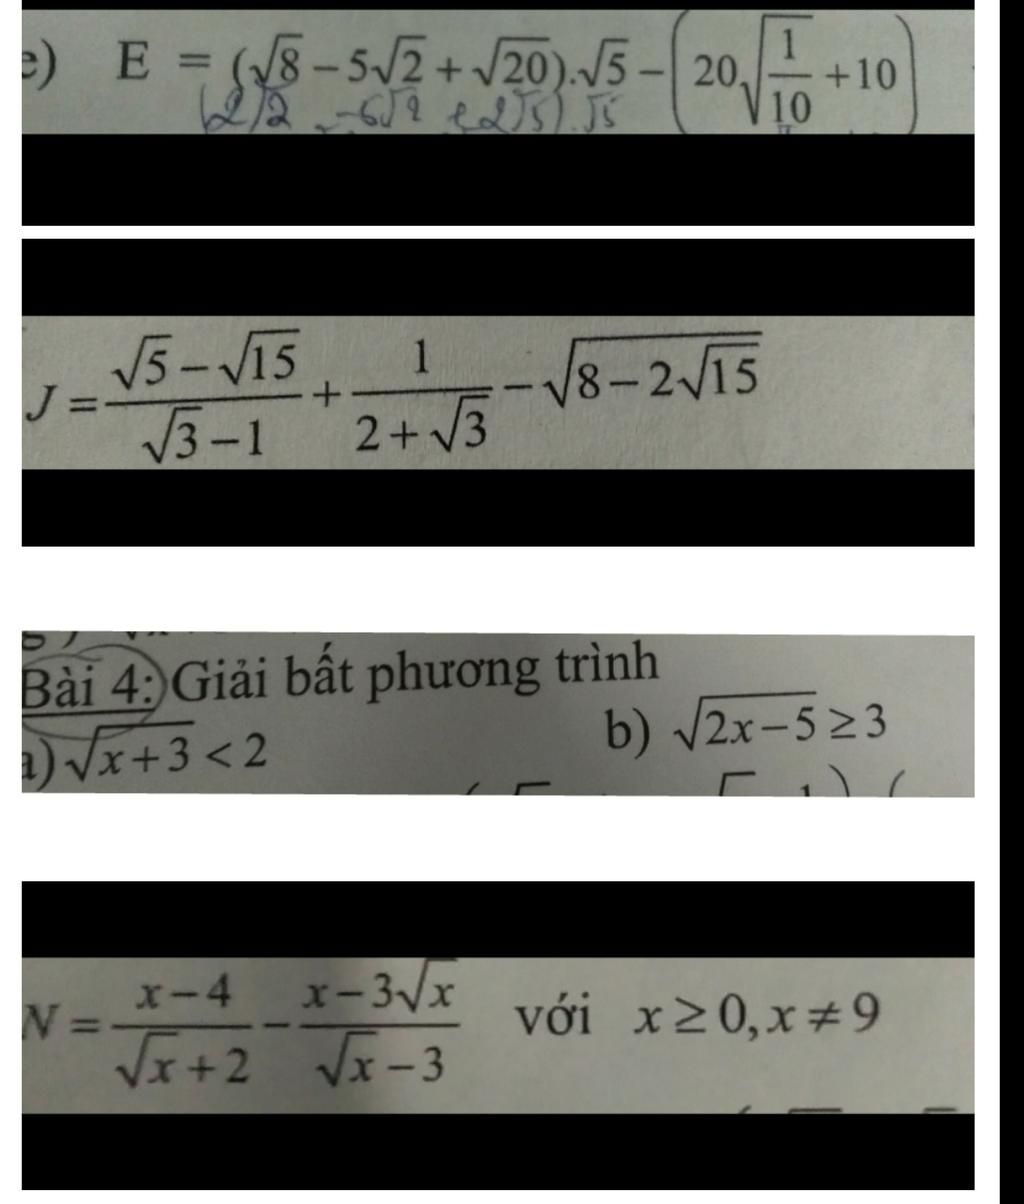 e) E = (√8 − 5√2 + √20).√5 − (20√(1/10) + 10)
(2√2 − 5√2 + 2√5).√5
J = (√5 − √15)/(√3 − 1) + 1/(2 + √3) − √(8 − 2√15)
Bài 4: Giải bất phương trình
a) √(x+3) < 2 b) √(2x−5) ≥ 3
N = (x−4)/(√x+2) − (x−3√x)/(√x−3) với x ≥ 0, x ≠ 9